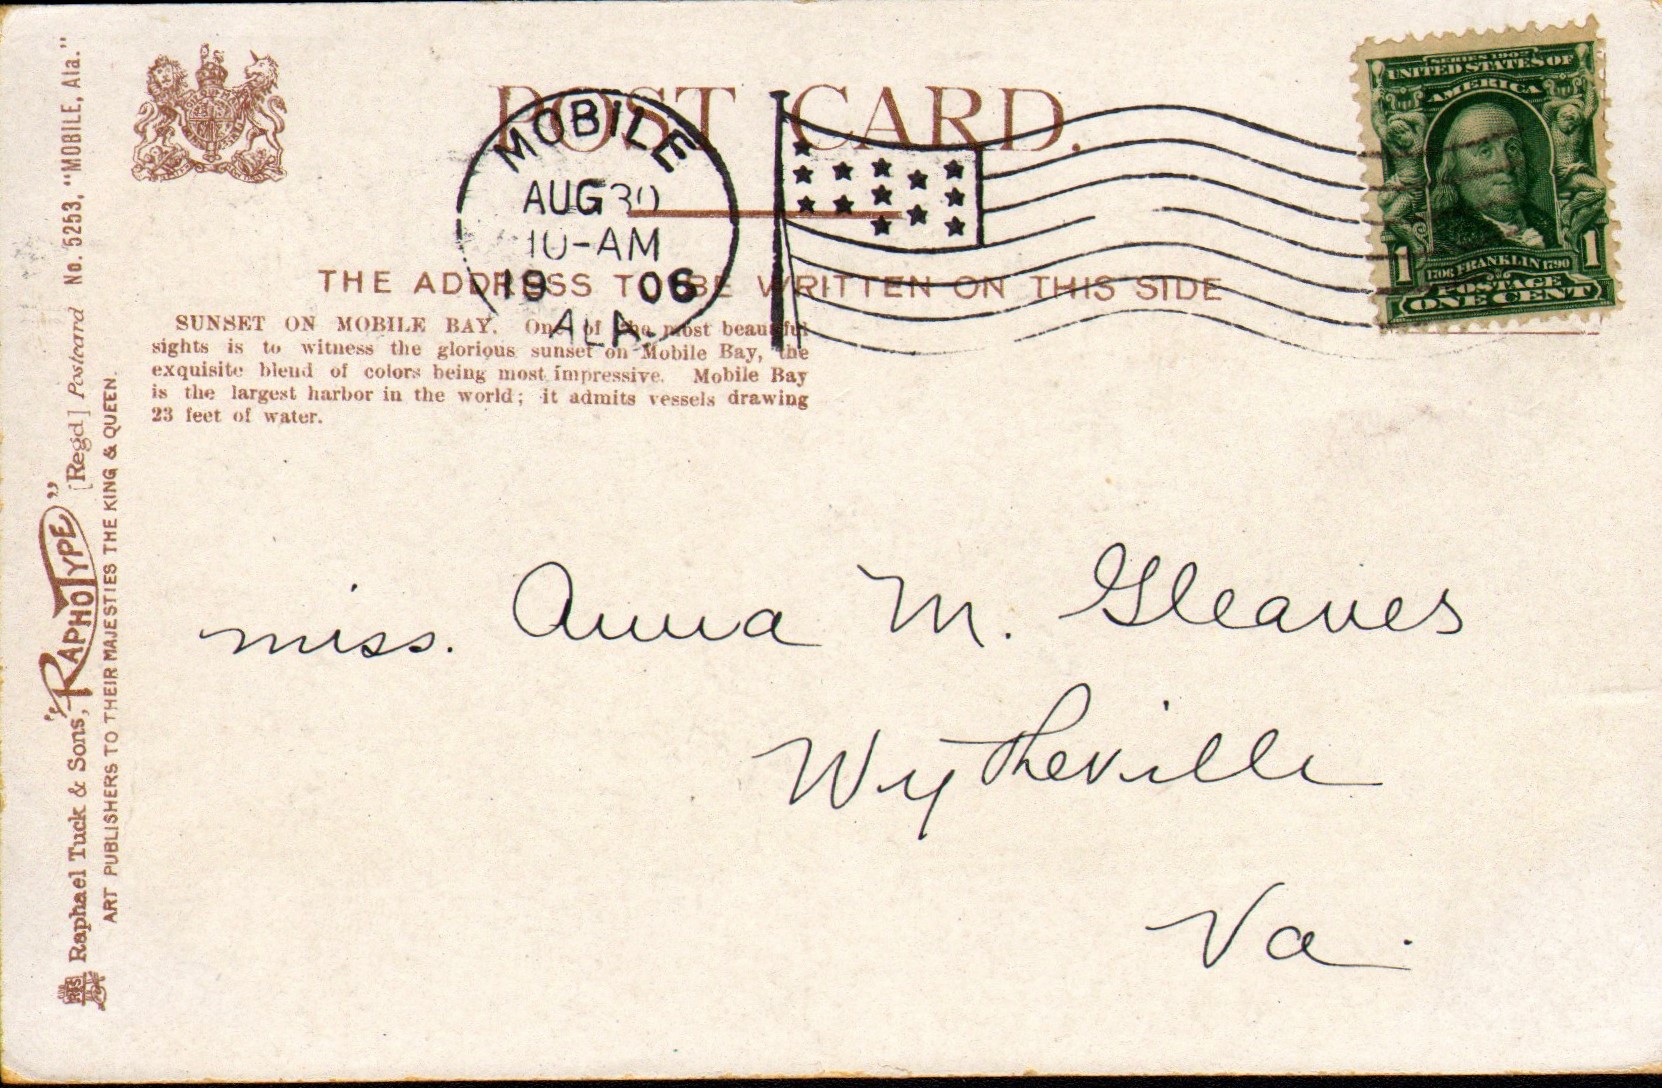 POST CARD.
MOBILE
AUG 30
10-AM
1906
ALA.
SERIES 1902
UNITED STATES OF
AMERICA
1706 FRANKLIN 1790
1 1
POSTAGE
ONE CENT
THE ADDRESS TO BE WRITTEN ON THIS SIDE
SUNSET ON MOBILE BAY. One of the most beautiful
sights is to witness the glorious sunset on Mobile Bay, the
exquisite blend of colors being most impressive. Mobile Bay
is the largest harbor in the world; it admits vessels drawing
23 feet of water.
miss. Anna M. Gleaves
Wytheville
Va.
Raphael Tuck & Sons, "RAPHOTYPE" [Regd] Postcard No. 5253, "MOBILE, Ala."
ART PUBLISHERS TO THEIR MAJESTIES THE KING & QUEEN.